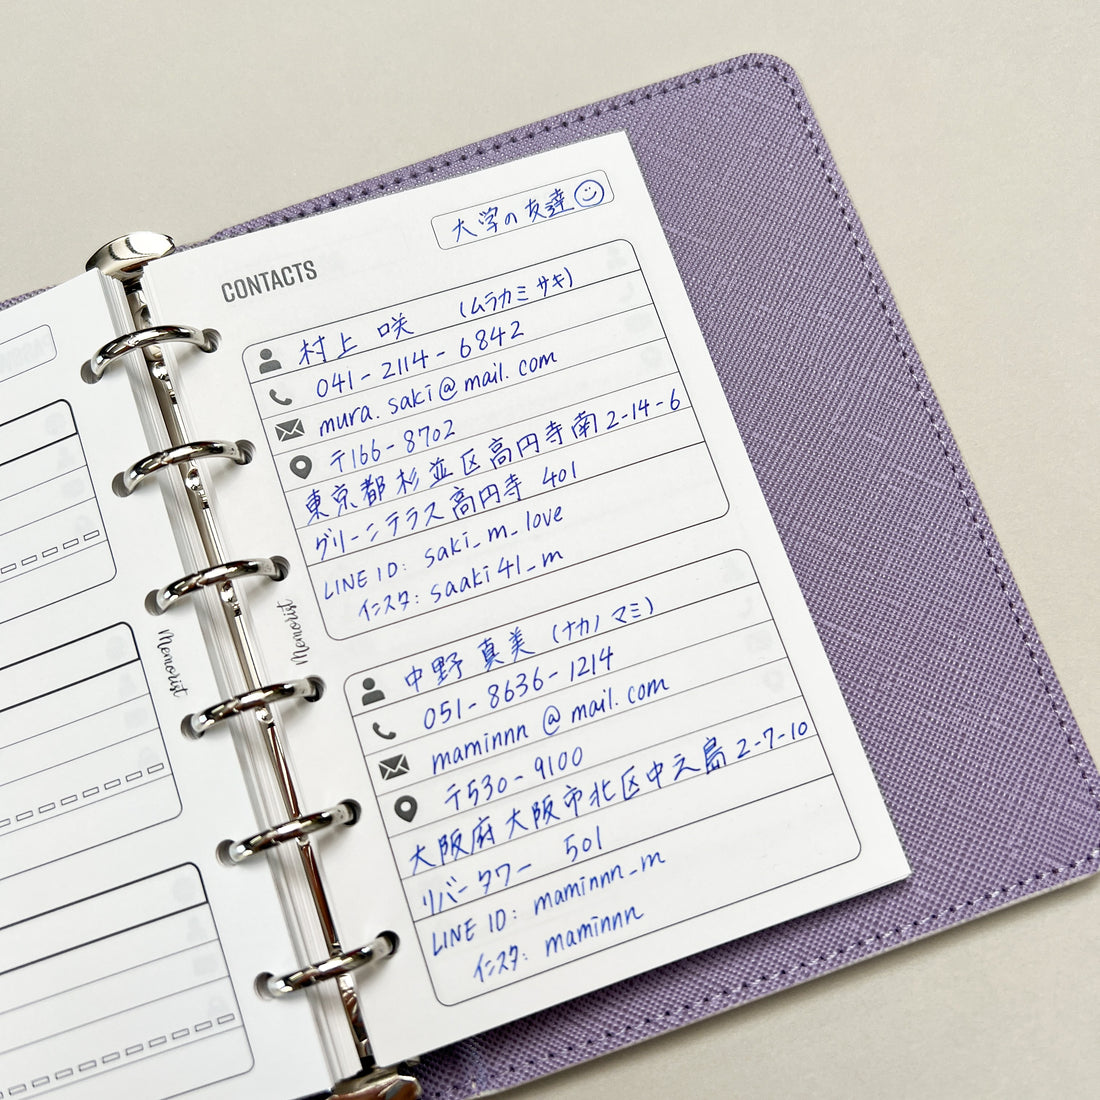 大学の友達
CONTACTS
村上 咲 (ムラカミ サキ)
041-2114-6842
mura.saki@mail.com
〒166-8702
東京都杉並区高円寺南2-14-6
グリーンテラス高円寺 401
LINE ID: saki_m_love
インスタ: saaki41_m
Memorist
Memorist
中野 真美 (ナカノ マミ)
051-8636-1214
maminnn@mail.com
〒530-9100
大阪府大阪市北区中之島2-7-10
リバータワー 501
LINE ID: maminnn_m
インスタ: maminnn